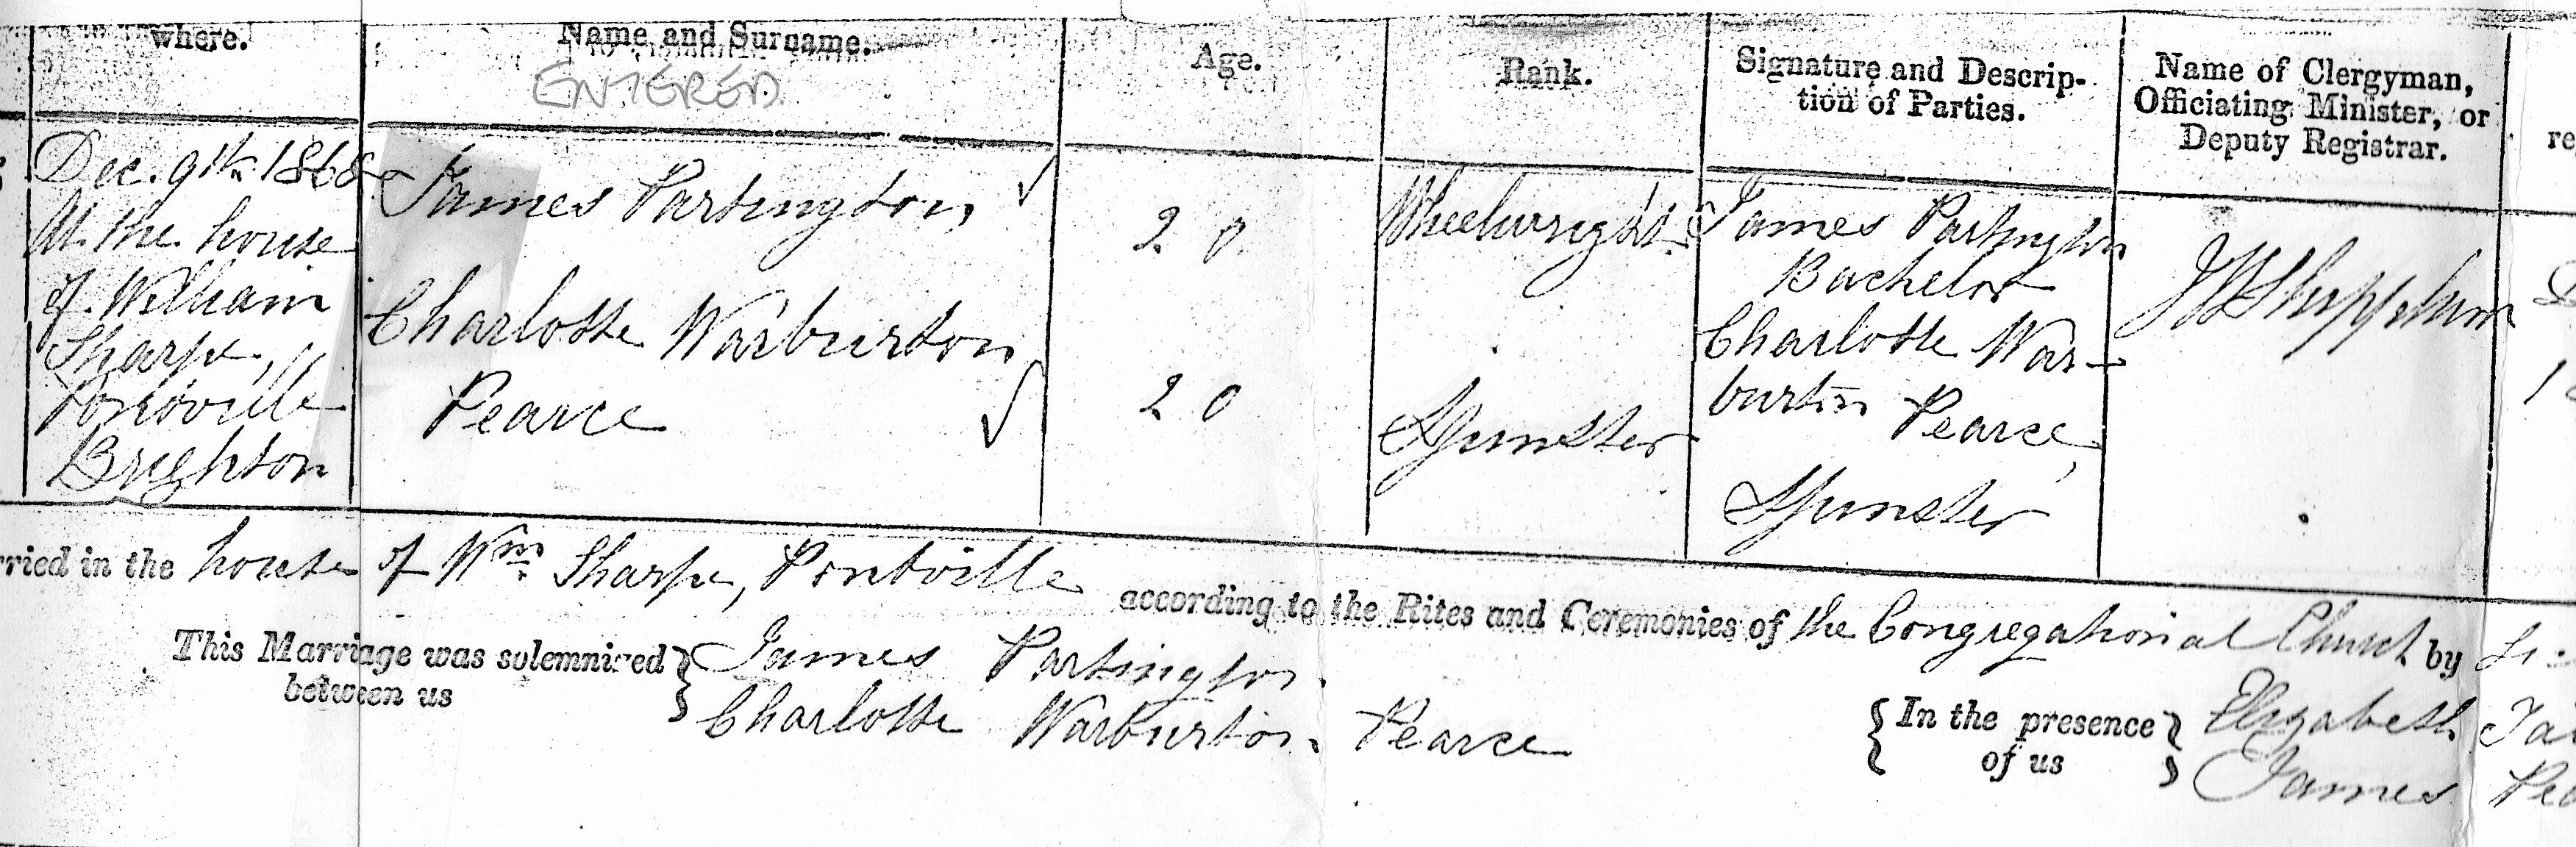 where.
Name and Surname.
Age.
Rank.
Signature and Descrip-
tion of Parties.
Name of Clergyman,
Officiating Minister, or
Deputy Registrar.
re
ENTERED
Dec. 9th 1868
At the house
of William
Sharpe,
Pontville
Brighton
James Partington
Charlotte Warburton
Pearce
20
20
Wheelwright
Spinster
James Partington
Bachelor
Charlotte War-
burton Pearce,
Spinster
rried in the house of Wm Sharpe, Pontville according to the Rites and Ceremonies of the Congregational Church by
This Marriage was solemnized
between us
James Partington
Charlotte Warburton Pearce
In the presence
of us
Elizabeth
James